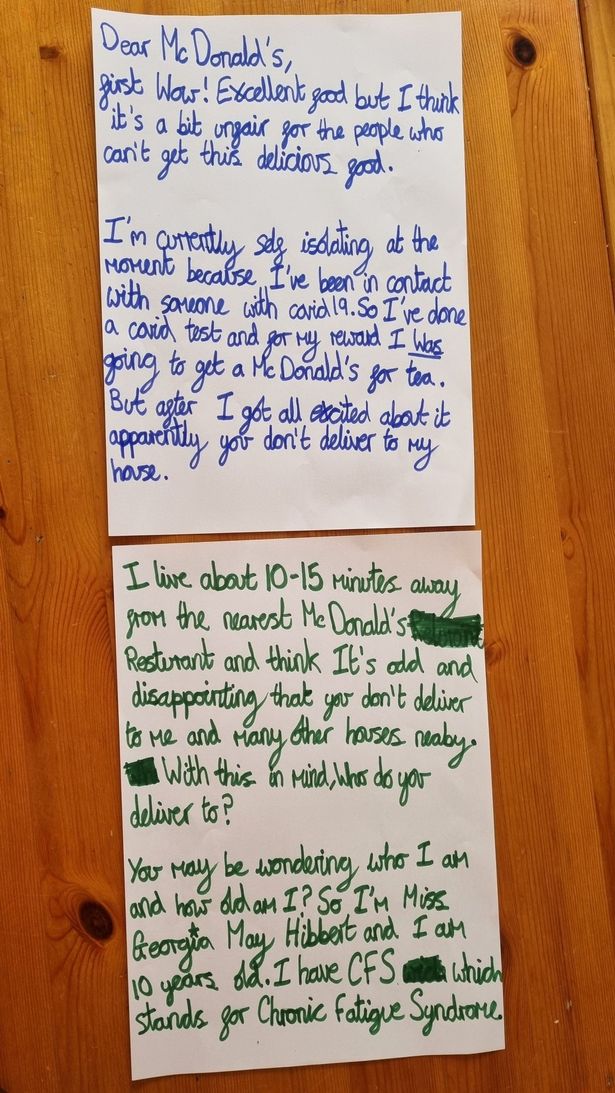 Dear McDonald's,
first Wow! Excellent food but I think
it's a bit unfair for the people who
can't get this delicious food.
I'm currently self isolating at the
moment because I've been in contact
with someone with covid19. So I've done
a covid test and for my reward I Was
going to get a McDonald's for tea.
But after I got all excited about it
apparently you don't deliver to my
house.
I live about 10-15 minutes away
from the nearest McDonald's
Resturant and think It's odd and
disappointing that you don't deliver
to me and many other houses neaby.
With this in mind, Who do you
deliver to?
You may be wondering who I am
and how old am I? So I'm Miss
Georgia May Hibbert and I am
10 years old. I have CFS which
stands for Chronic Fatigue Syndrome.